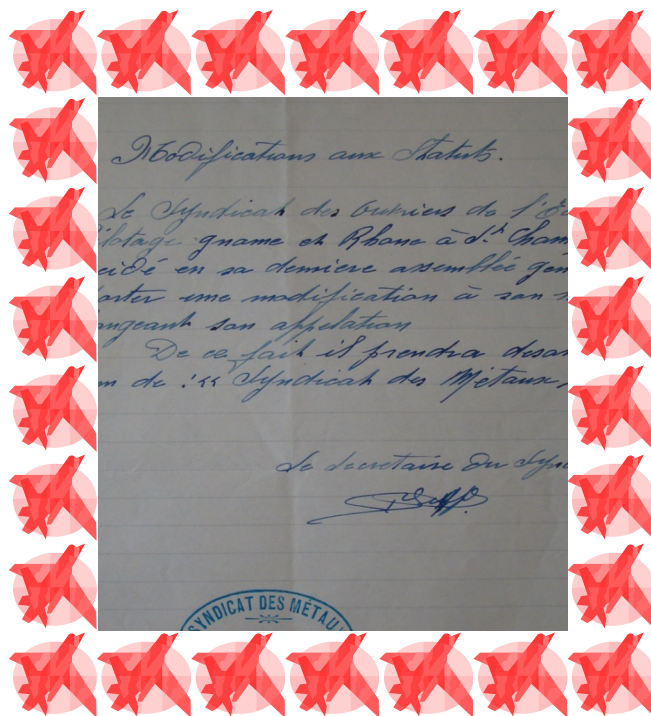 Modifications aux Statuts.
Le Syndicat des Ouvriers de l'
lotage gnome et Rhone à St Cham
cidé en sa derniere assemblée gen
orter une modification à son
ngeant son appelation
De ce fait il prendra desor
m de : "Syndicat des Métaux,
Le Secretaire du Syn
SYNDICAT DES METAU